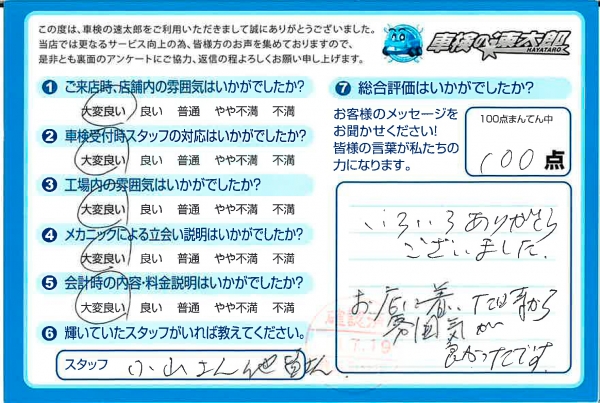 この度は、車検の速太郎をご利用いただきまして誠にありがとうございました。
当店では更なるサービス向上の為、皆様方のお声を集めておりますので、
是非とも裏面のアンケートにご協力、返信の程よろしくお願い申し上げます。
車検の速太郎
HAYATARO
1 ご来店時、店舗内の雰囲気はいかがでしたか?
大変良い 良い 普通 やや不満 不満
2 車検受付時スタッフの対応はいかがでしたか?
大変良い 良い 普通 やや不満 不満
3 工場内の雰囲気はいかがでしたか?
大変良い 良い 普通 やや不満 不満
4 メカニックによる立会い説明はいかがでしたか?
大変良い 良い 普通 やや不満 不満
5 会計時の内容・料金説明はいかがでしたか?
大変良い 良い 普通 やや不満 不満
6 輝いていたスタッフがいれば教えてください。
スタッフ 小山さん他皆さん
7 総合評価はいかがでしたか?
お客様のメッセージを
お聞かせください!
皆様の言葉が私たちの
力になります。
100点まんてん中
100 点
いろいろありがとう
ございました.
お店に着いた時から
雰囲気が
良かったです。
7.19